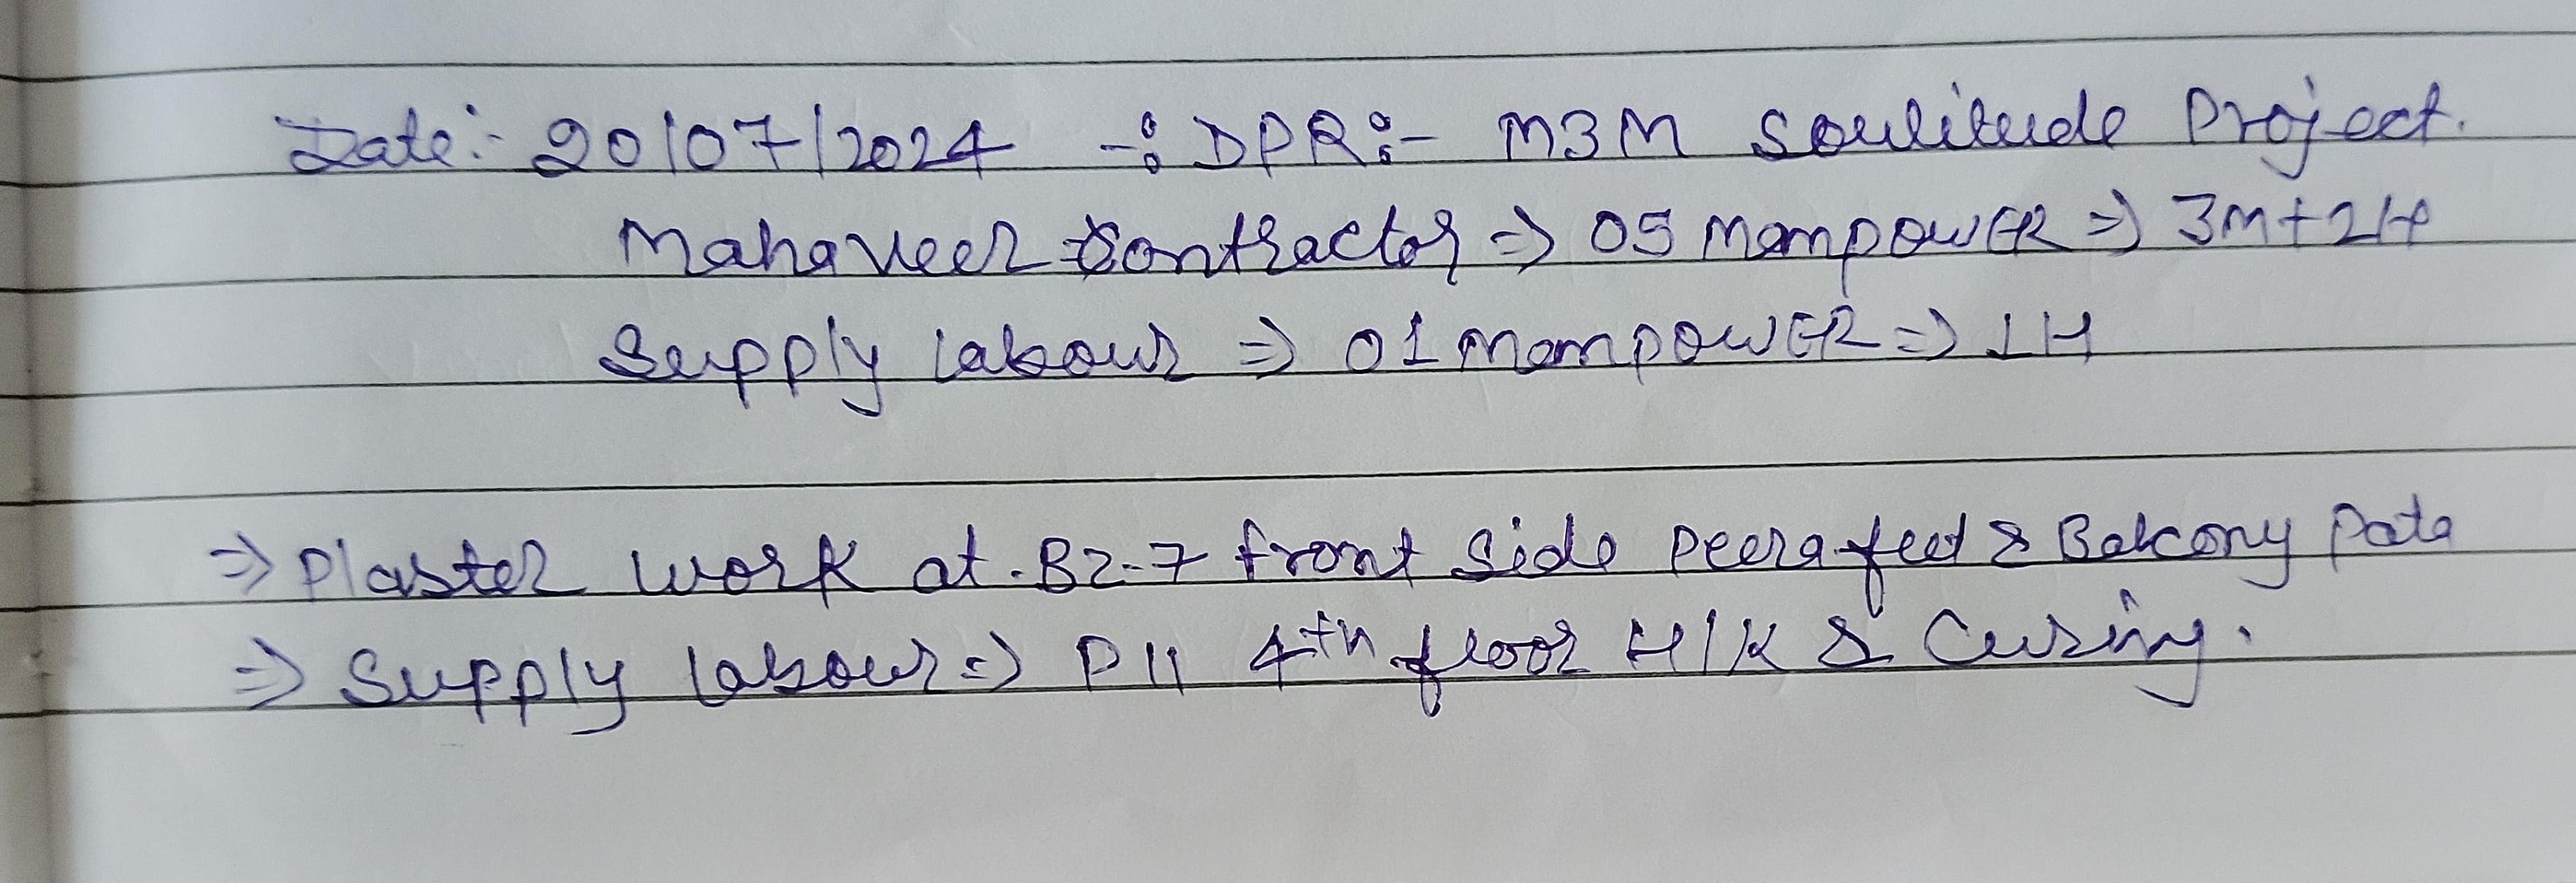 Date:- 20/07/2024 -: DPR :- M3M Soulitude Project.
Mahaveer Contractor => 05 Manpower => 3M+2H
Supply labour => 01 Manpower => 1H
=> Plaster work at B2-7 front side Peerafeet & Balcony Pata
=> Supply labour => P11 4th floor H/K & Curing.